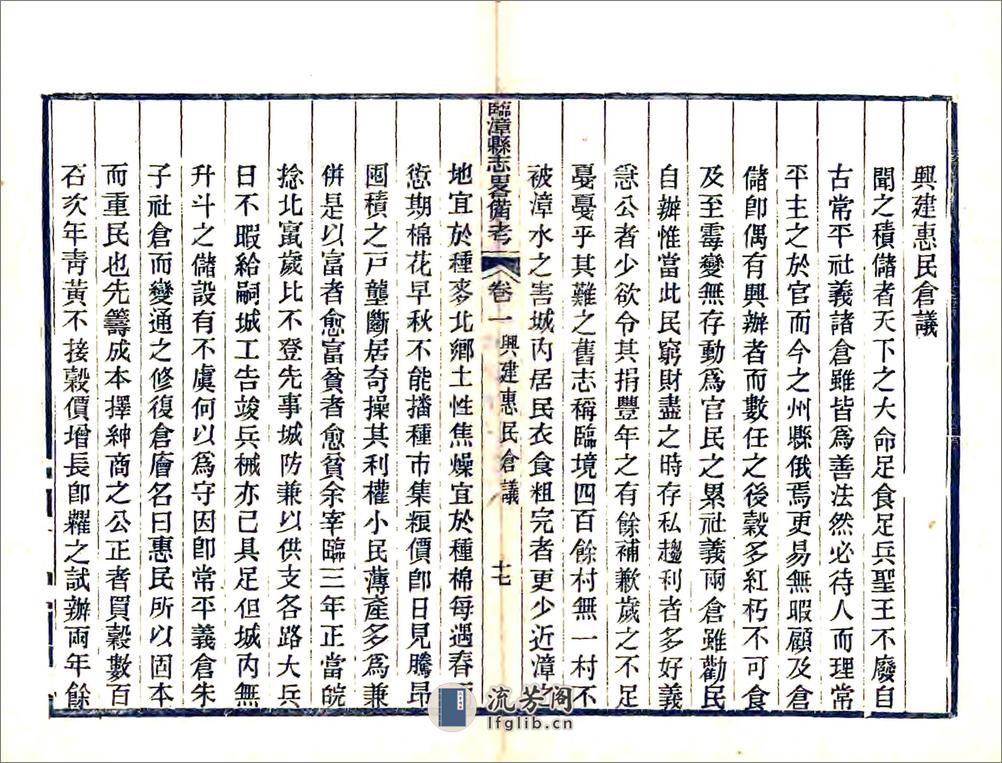 興建惠民倉議
聞之積儲者天下之大命足食足兵聖王不廢自
古常平社義諸倉雖皆爲善法然必待人而理常
平主之於官而今之州縣俄焉更易無暇顧及倉
儲卽偶有興辦者而數任之後穀多紅朽不可食
及至霉變無存動爲官民之累社義兩倉雖勸民
自辦惟當此民窮財盡之時存私趨利者多好義
急公者少欲令其捐豐年之有餘補歉歲之不足
戞戞乎其難之舊志稱臨境四百餘村無一村不
被漳水之害城內居民衣食粗完者更少近漳
臨漳縣志畧備考
卷一
興建惠民倉議
十七
地宜於種麥北鄉土性焦燥宜於種棉每遇春
愆期棉花早秋不能播種市集粮價卽日見騰昂
囤積之戸壟斷居奇操其利權小民薄產多爲兼
併是以富者愈富貧者愈貧余宰臨三年正當皖
捻北竄歲比不登先事城防兼以供支各路大兵
日不暇給嗣城工告竣兵械亦已具足但城內無
升斗之儲設有不虞何以爲守因卽常平義倉朱
子社倉而變通之修復倉廒名曰惠民所以固本
而重民也先籌成本擇紳商之公正者買穀數百
石次年青黃不接穀價增長卽糶之試辦兩年餘
流芳阁
lfglib.cn